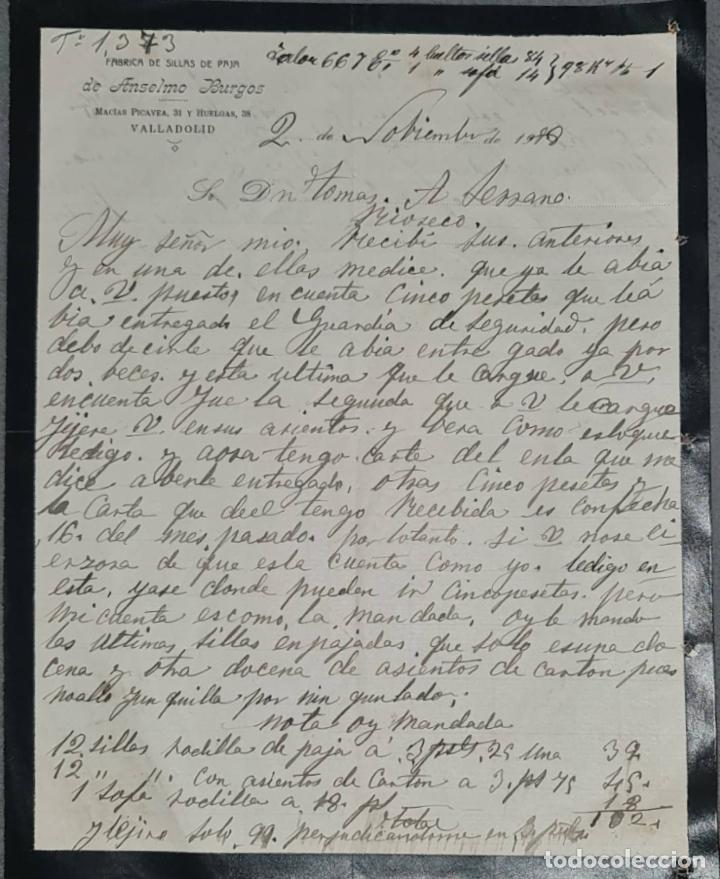 Tº 1,373
Valor 667 4 bultos sillas 84
1 " sofá 14 } 98 Kº
FÁBRICA DE SILLAS DE PAJA
de Anselmo Burgos
MACÍAS PICAVEA, 31 Y HUELGAS, 38
VALLADOLID
2 de Nobiembre de 19
Sr. Dn Tomas. A Serrano.
Rioseco.
Muy Señor mio. Recibí sus. anteriores
y en una de. ellas medice. que ya le abia
a. V. puestos en cuenta Cinco pesetas que leá
bia entregado el Guardia de Seguridad. pero
debo decirle que le abia entre gado ya por
dos beces. y esta ultima que le cargue, a V.
encuenta fue la segunda que a V le cargue
fijese V. ensus asientos. y bera como esloque
ledigo. y aora tengo carta del en la que me
dice aberle entregado, otras Cinco pesetas y
la Carta que deel tengo Recibida es confecha
16. del mes, pasado. por lotanto. Si V nose ci
erzora de que esta cuenta Como yo. ledigo en
esta, yase donde pueden ir Cincopesetas. pero
mi cuenta es como, la mandada, oy le mando
las Ultimas sillas enpajadas que solo esuna do
cena y otra docena de asientos de carton pues
noallo Junquilla por nin gun lado,
Nota oy Mandada
12 sillas rodilla de paja á 3 pts. 25 una 39.
12 " " con asientos de Carton a 3. pt 75 45.
1 " Sofá rodilla a 18. pt 18
total 102.
y lejiro solo, 99. perjudicandome en 3 pts